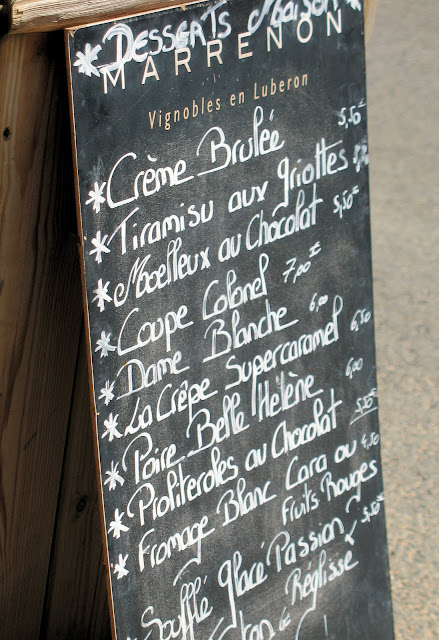 * Desserts Maison *
MARRENON
Vignobles en Luberon
* Crème Brulée 5,50€
* Tiramisu aux griottes
* Moelleux au Chocolat 5,50€
* Coupe Colonel 7,00€
Dame Blanche 6,00
* La Crêpe Supercaramel 6,50
* Poire Belle Hélène 6,00
* Profiteroles au Chocolat 5,50
* Fromage Blanc Cara ou 4,50
* Fruits Rouges
Soufflé glacé Passion 5,50€
Réglisse